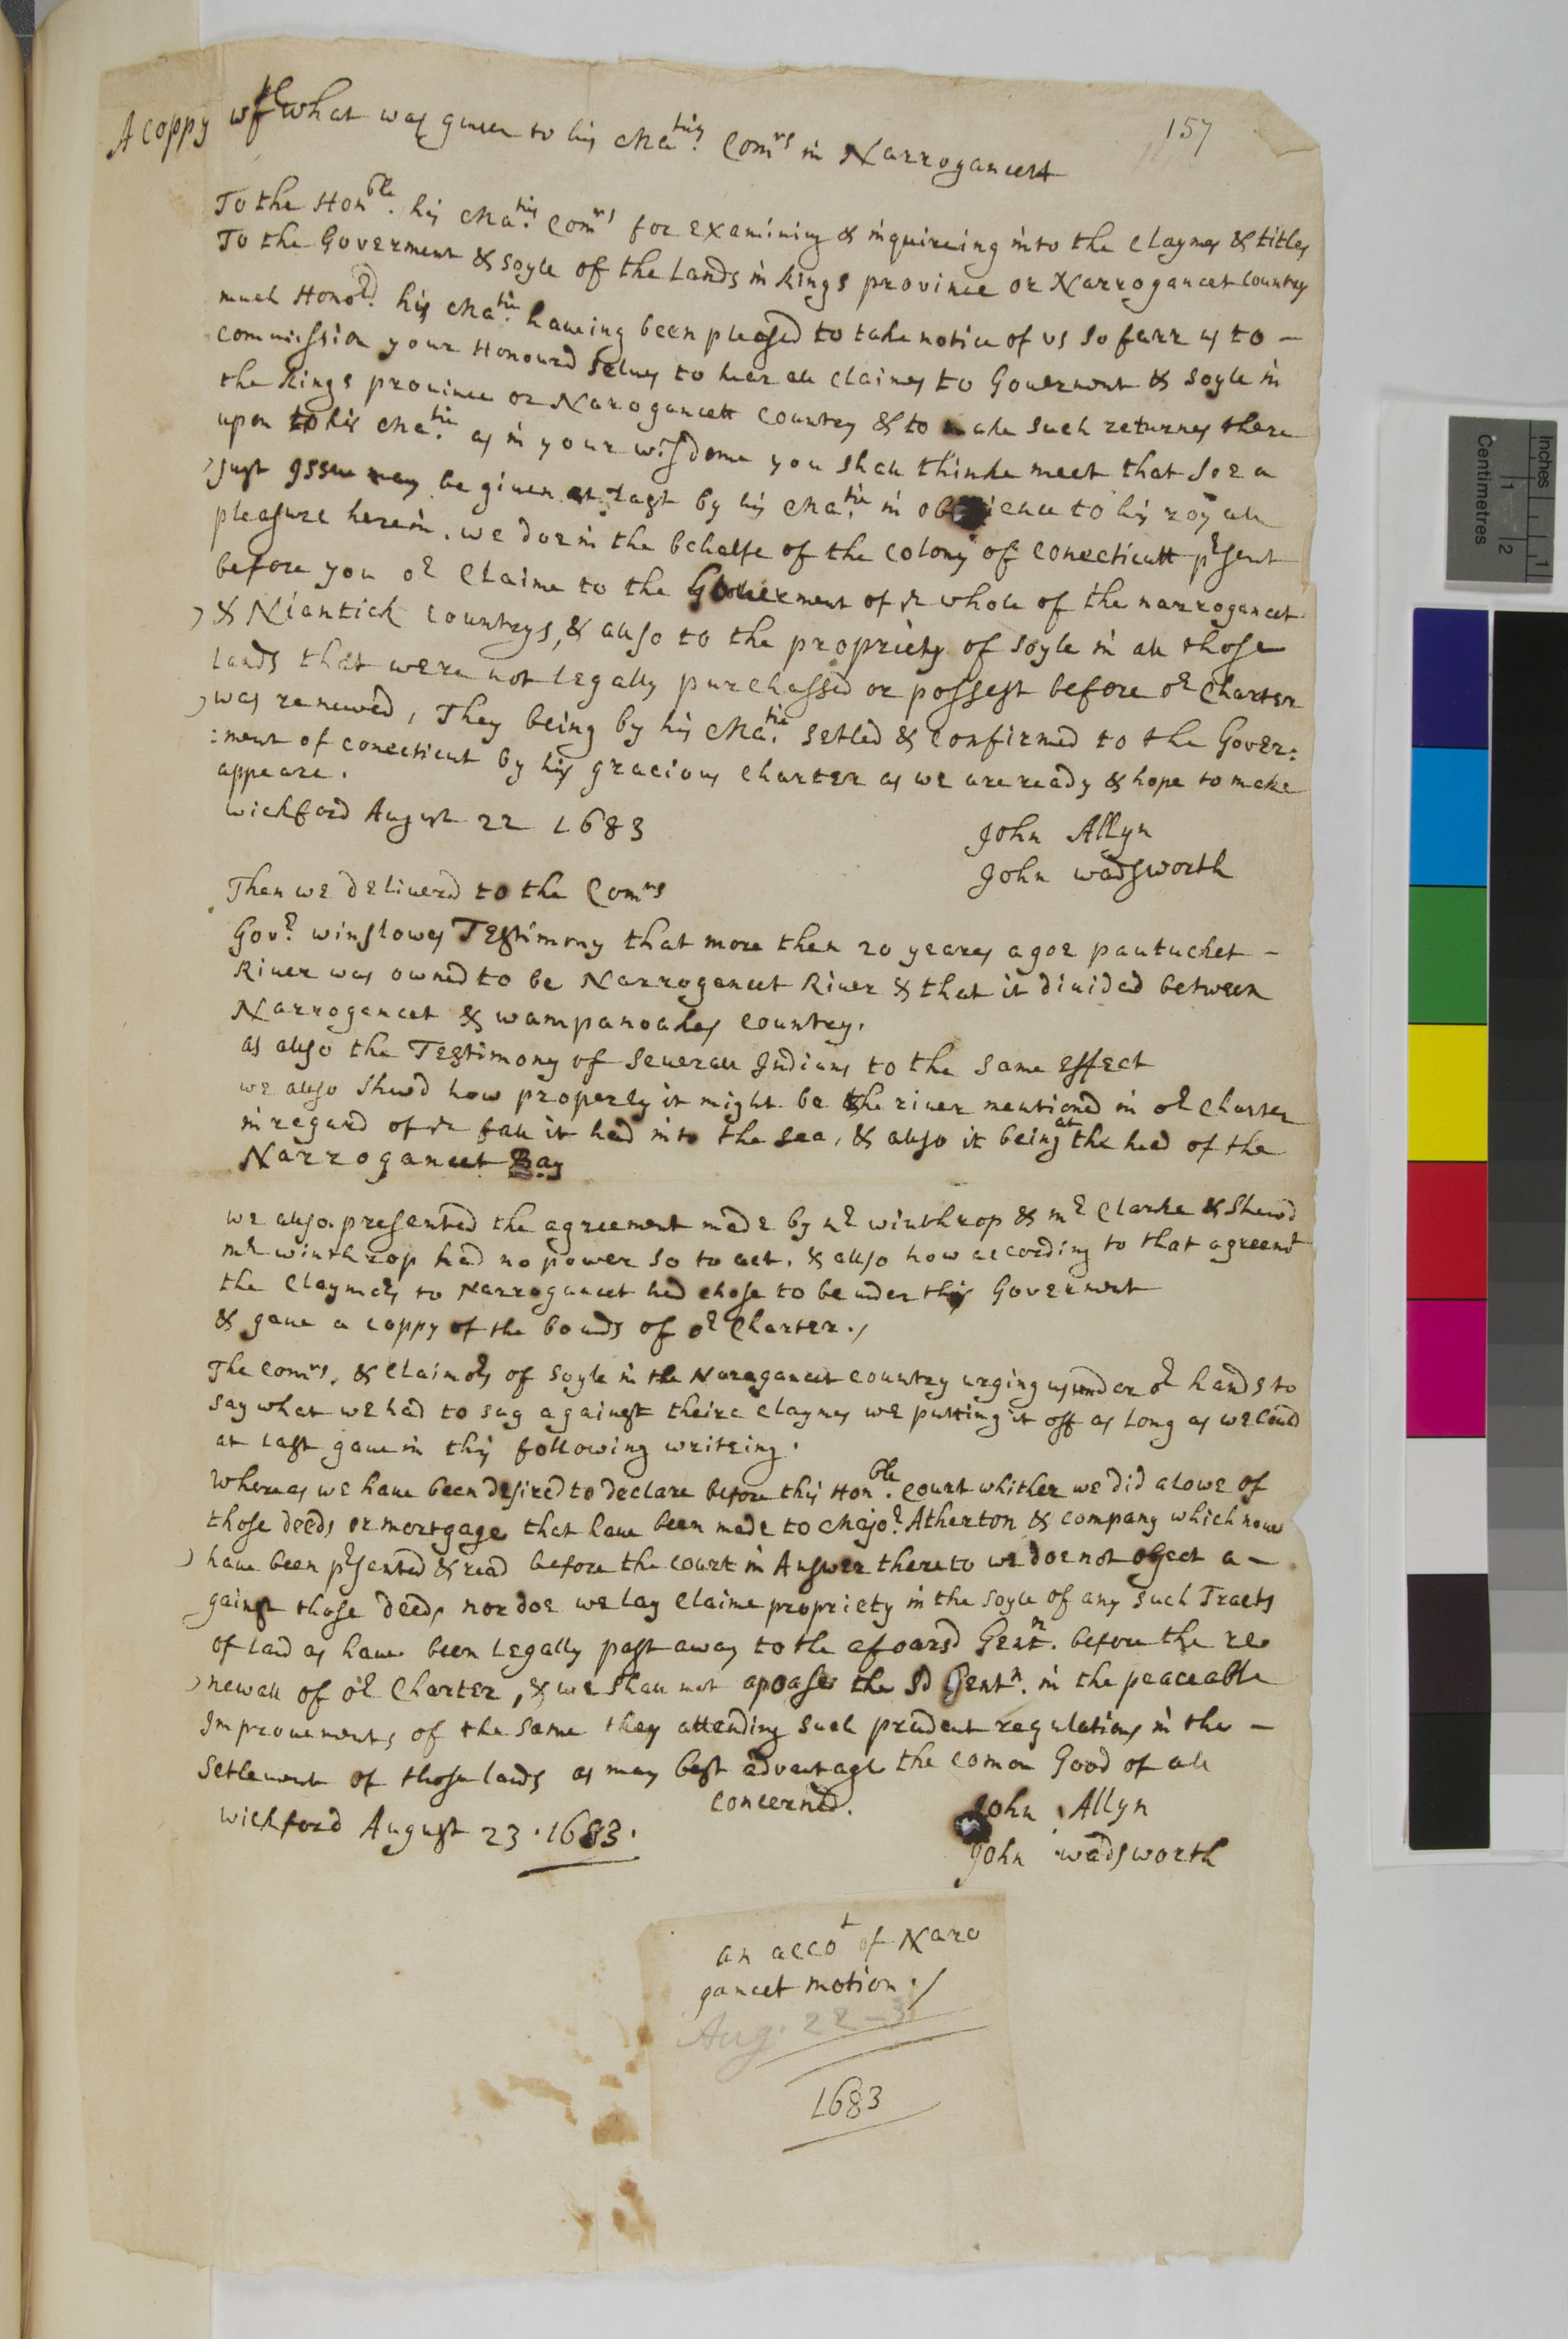 157
A coppy of what was giuen to his Maties Comrs in Narrogancett
To the Honble his Maties Comrs for examining & inquireing into the claymes & titles
To the Goverment & soyle of the Lands in Kings province or Narrogancet country
much Honord his Matie haueing been pleased to take notice of vs so farr as to —
commission your Honourd selues to hear all claimes to Gouerment & soyle in
the Kings prouince or Narogancett country & to make such returnes there
upon to his Matie as in your wisdome you shall thinke meet that soe a
just Issue may be giuen at last by his Matie in obedience to his royall
pleasure herein. we doe in the behalfe of the colony of conecticutt prsent
before you or Claime to the Gouerment of ye whole of the narrogancet
& Niantick countrys, & allso to the propriety of soyle in all those
lands that were not legally purchassed or possest before or Charter
was renewed, They being by his Matie setled & confirmed to the Gover:
:ment of conecticut by his gracious charter as we are ready & hope to make
appeare.
wickford August 22 1683
John Allyn
John wadsworth
Then we deliuerd to the Comrs
Govr winslowes Testimony that more then 20 yeares agoe pautucket —
Riuer was owned to be Narrogancet Riuer & that it diuided between
Narrogancet & wampanoakes country.
as allso the Testimony of seuerall Indians to the same effect
we allso shewd how properly it might be the riuer mentioned in or Charter
in regard of ye fall it had into the sea, & allso it being at the head of the
Narrogancet Bay
we allso presented the agreement made by mr winthrop & mr Clarke & shewd
mr winthrop had no power so to act. & allso how according to that agreemt
the Claymers to Narrogancet had chose to be under this Goverment
& gaue a coppy of the bounds of or Charter./
The comrs. & Claimors of soyle in the Naragancet country urging us under or hands to
say what we had to say against theire claymes we putting it off as long as we Could
at last gaue in this following writeing.
Whereas we haue been desired to declare before this Honble. Court whither we did alowe of
those deeds or mortgage that haue been made to Major Atherton & company which now
haue been prsented & read before the court in Answer thereto we doe not object a —
gainst those deeds nor doe we lay claime propriety in the soyle of any such Tracts
of land as haue been legally past away to the afoarsd Gentn. before the re
newall of or Charter, & we shall not apoase the sd Gentn. in the peaceable
Improuements of the same they attending such prudent regulations in the —
setlement of those lands as may best advantage the comon Good of all
concerned.
wickford August 23. 1683.
John Allyn
John wadsworth
an accot of Nara
gancet motion./
Aug. 22-3
1683
Inches
Centimetres
1
2
1